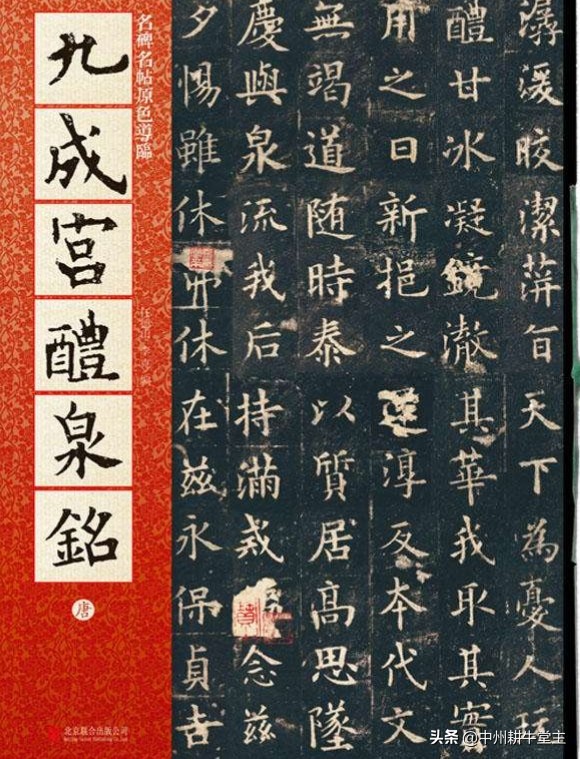 名碑名帖原色導臨
九成宮醴泉銘
唐
北京联合出版公司
潺湲皎潔萍旨天下為憂人玩
醴甘冰凝鏡澈其華我取其實
用之日新挹之淳反本代文
無竭道随時泰以質居高思墜
慶與泉流我后持滿戒念茲
夕惕雖休休在茲永保貞吉
头条 @中州耕牛堂主